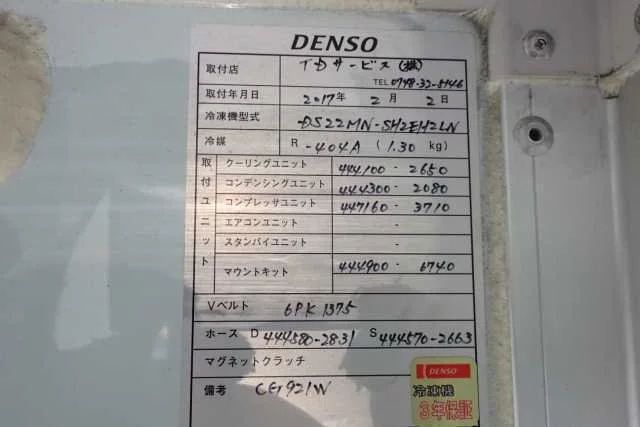 DENSO
取付店 TDサービス(株)
TEL 0748-32-5146
取付年月日 2017年 2月 2日
冷凍機型式 DS22MN-SH2EH2LN
冷媒 R-404A (1.30 kg)
取付ユニット
クーリングユニット 444100-2650
コンデンシングユニット 444300-2080
コンプレッサユニット 447160-3710
エアコンユニット -
スタンバイユニット -
マウントキット 444900-6740
Vベルト 6PK1375
ホース D 444580-2831 S 444570-2663
マグネットクラッチ
備考 CG921W
DENSO
冷凍機
3年保証